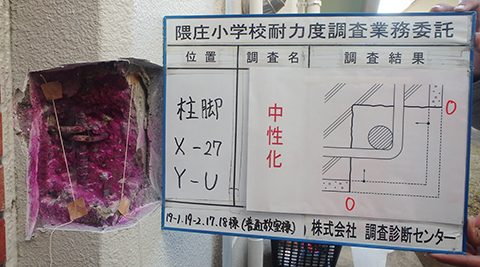 隈庄小学校耐力度調査業務委託
位置 調査名 調査結果
柱脚
X-27
Y-U
中性化
0
0
19-1.19-2.17.18棟(普通教室棟) 株式会社 調査診断センター